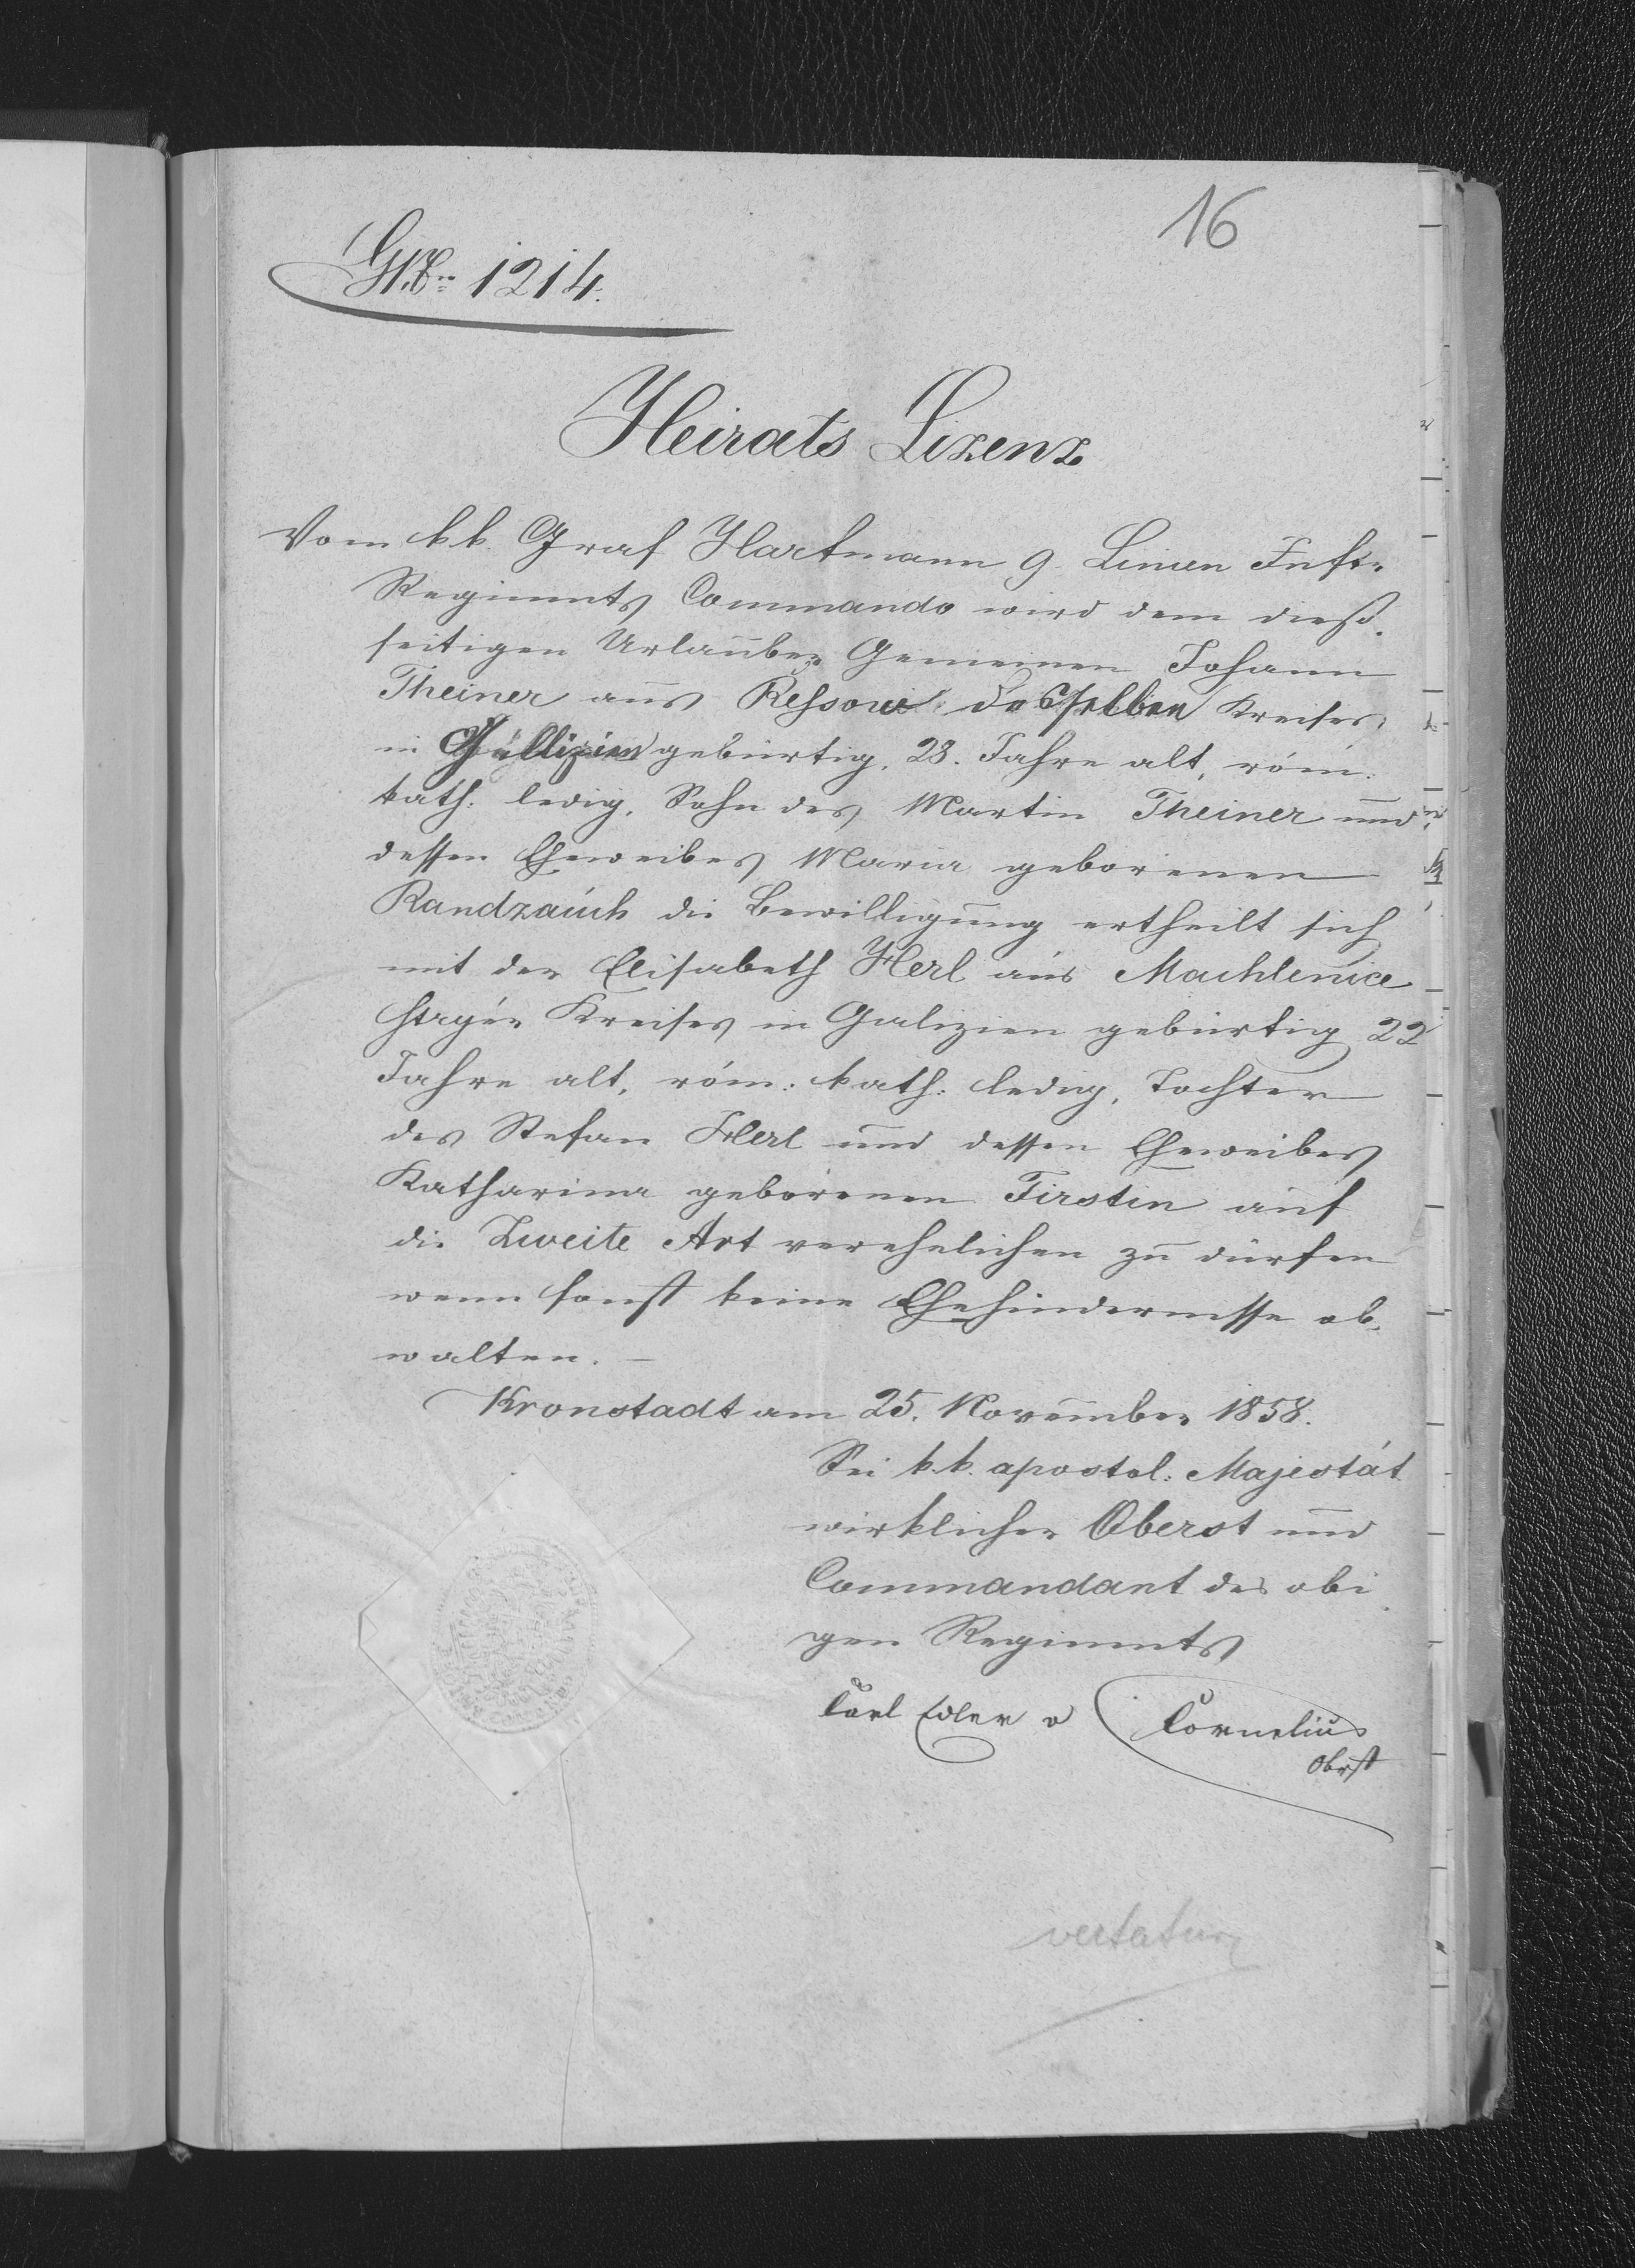 16
1214.
Heirats Lizenz
Vom k.k. Graf Hartmann 9. Linien Inft.
Regiments Commando wird dem dieß-
seitigen Urlauber Gemeinen Johann
Theiner aus desselben Kreises,
in Gallizien gebürtig, 28. Jahre alt, röm.
kath. ledig, Sohn des Martin Theiner und
dessen Eheweibes Maria geborenen
Randzaich die Bewilligung ertheilt sich
mit der Elisabeth Herl aus Machlenice
Stryer Kreises in Galizien gebürtig 22
Jahre alt, röm: kath: ledig, Tochter
des Stefan Herl und dessen Eheweibes
Katharina geborenen Firstin auf
die Zweite Art verehelichen zu dürfen
wenn sonst keine Ehehindernisse ob-
walten. –
Kronstadt am 25. November 1858.
Sr. k.k. apostol: Majestät
wirklicher Oberst und
Commandant des obi
gen Regiments
Carl Edler v Cornelius
Obrst
vertatur